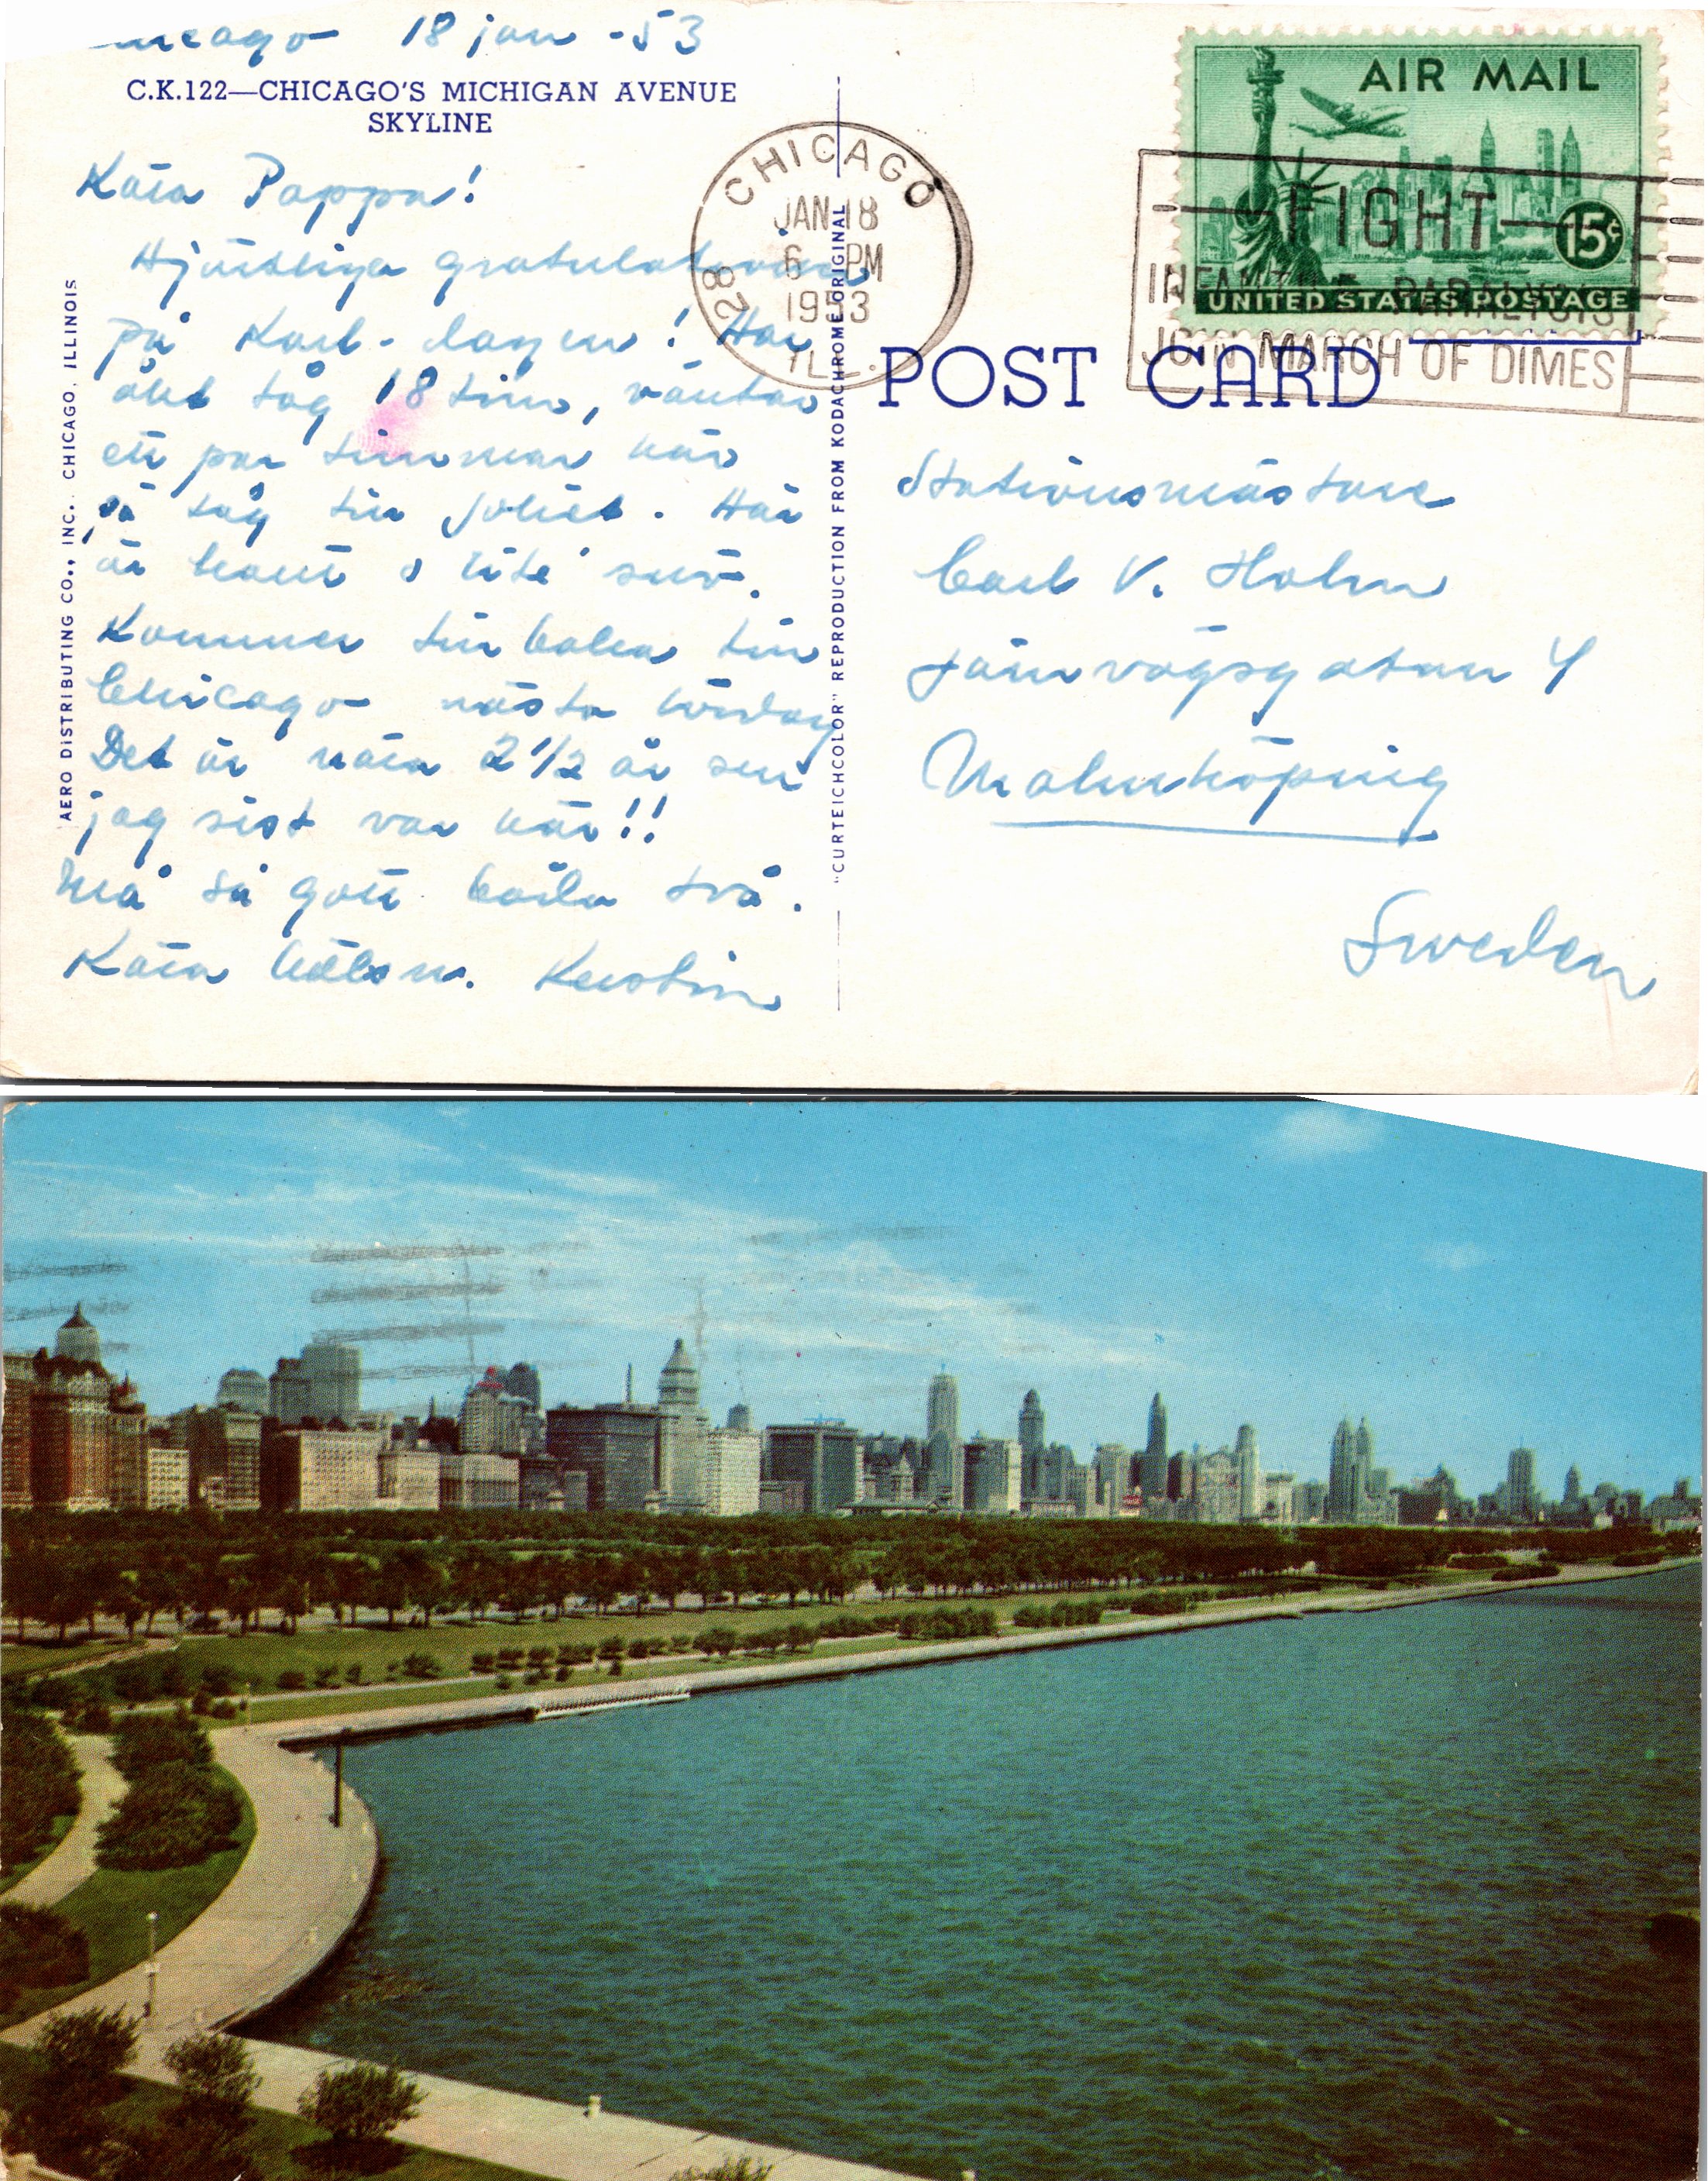 Chicago 18 jan -53
C.K.122—CHICAGO'S MICHIGAN AVENUE
SKYLINE
Kära Pappa!
Hjärtliga gratulationer
på Karl-dagen! Har
åkt tåg 18 tim, väntar
ett par timmar här
på tåg till Joliet. Här
är bara lite snö.
Kommer tillbaka till
Chicago nästa lördag
Det är nära 2 1/2 år sen
jag sist var här!!
Må så gott båda två.
Kära hälsn. Kerstin
AERO DISTRIBUTING CO., INC. CHICAGO, ILLINOIS
"CURTEICHCOLOR" REPRODUCTION FROM KODACHROME ORIGINAL
CHICAGO
28
JAN 18
6 PM
1953
ILL.
AIR MAIL
15¢
UNITED STATES POSTAGE
FIGHT
INFANTILE PARALYSIS
JOIN MARCH OF DIMES
POST CARD
Stationsmästare
Carl V. Holm
Järnvägsgatan 4
Malmköping
Sweden